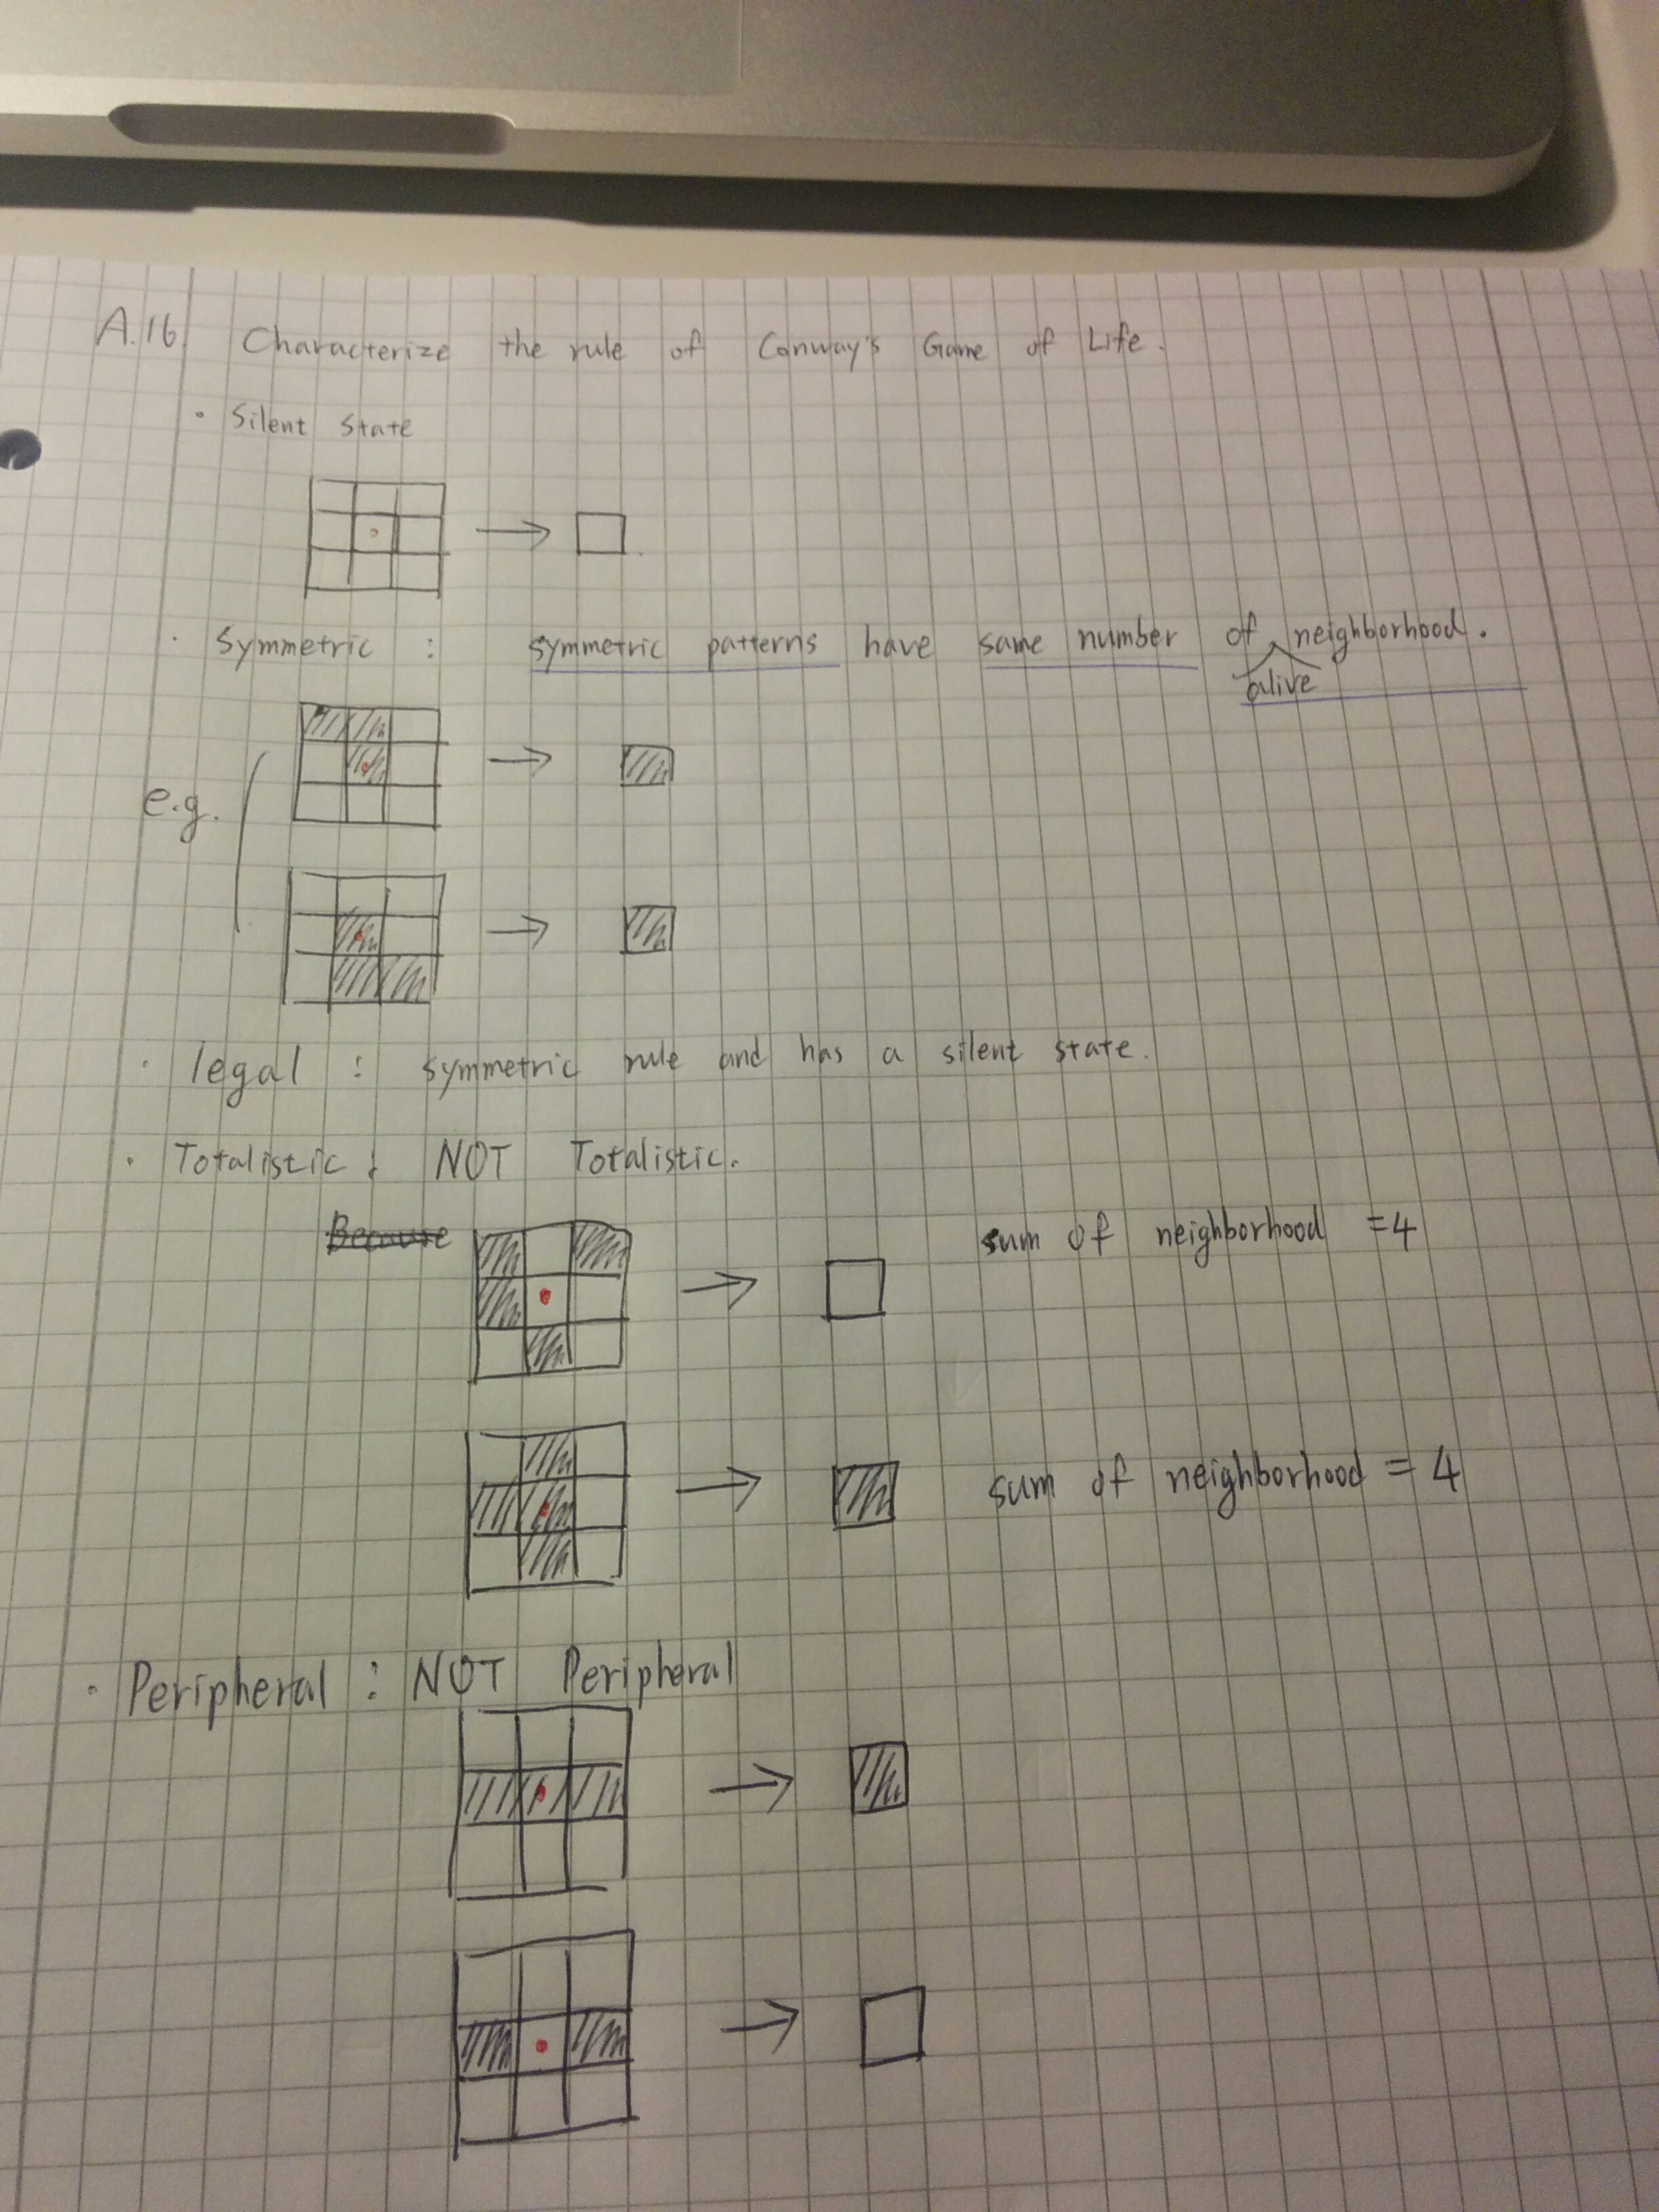 A.16. Characterize the rule of Conway's Game of Life.
· Silent State
· Symmetric : symmetric patterns have same number of alive neighborhood.
e.g.
· legal : symmetric rule and has a silent state.
· Totalistic : NOT Totalistic.
Because
sum of neighborhood = 4
sum of neighborhood = 4
· Peripheral : NOT Peripheral